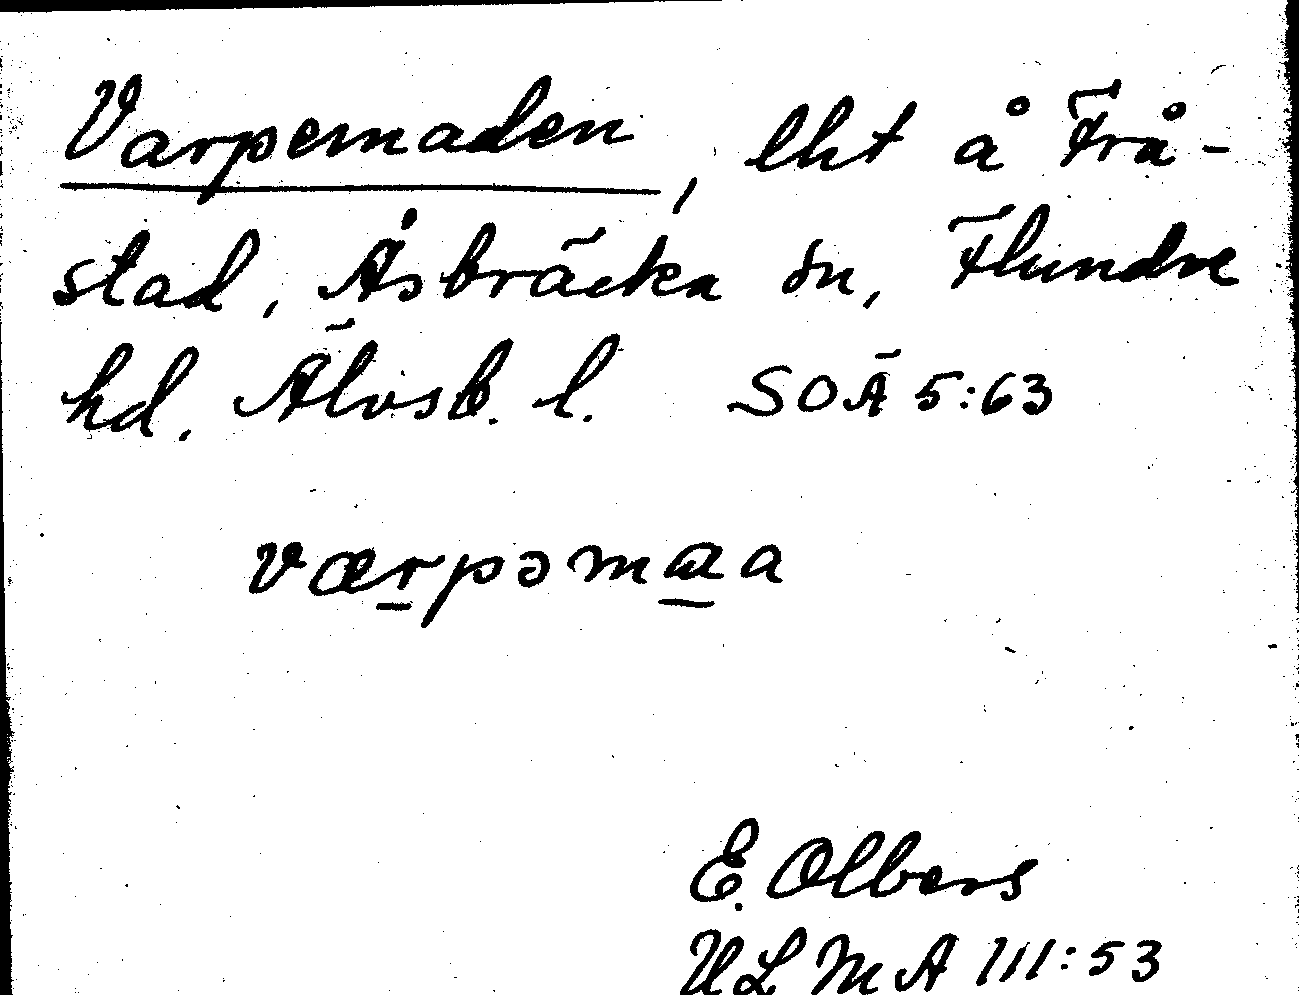 Varpemaden, lht å Frå-
stad, Åsbräcka sn, Flundre
hd. Älvsb. l. SOÄ 5:63
værpəmaa
E. Olbers
ULMA 111:53